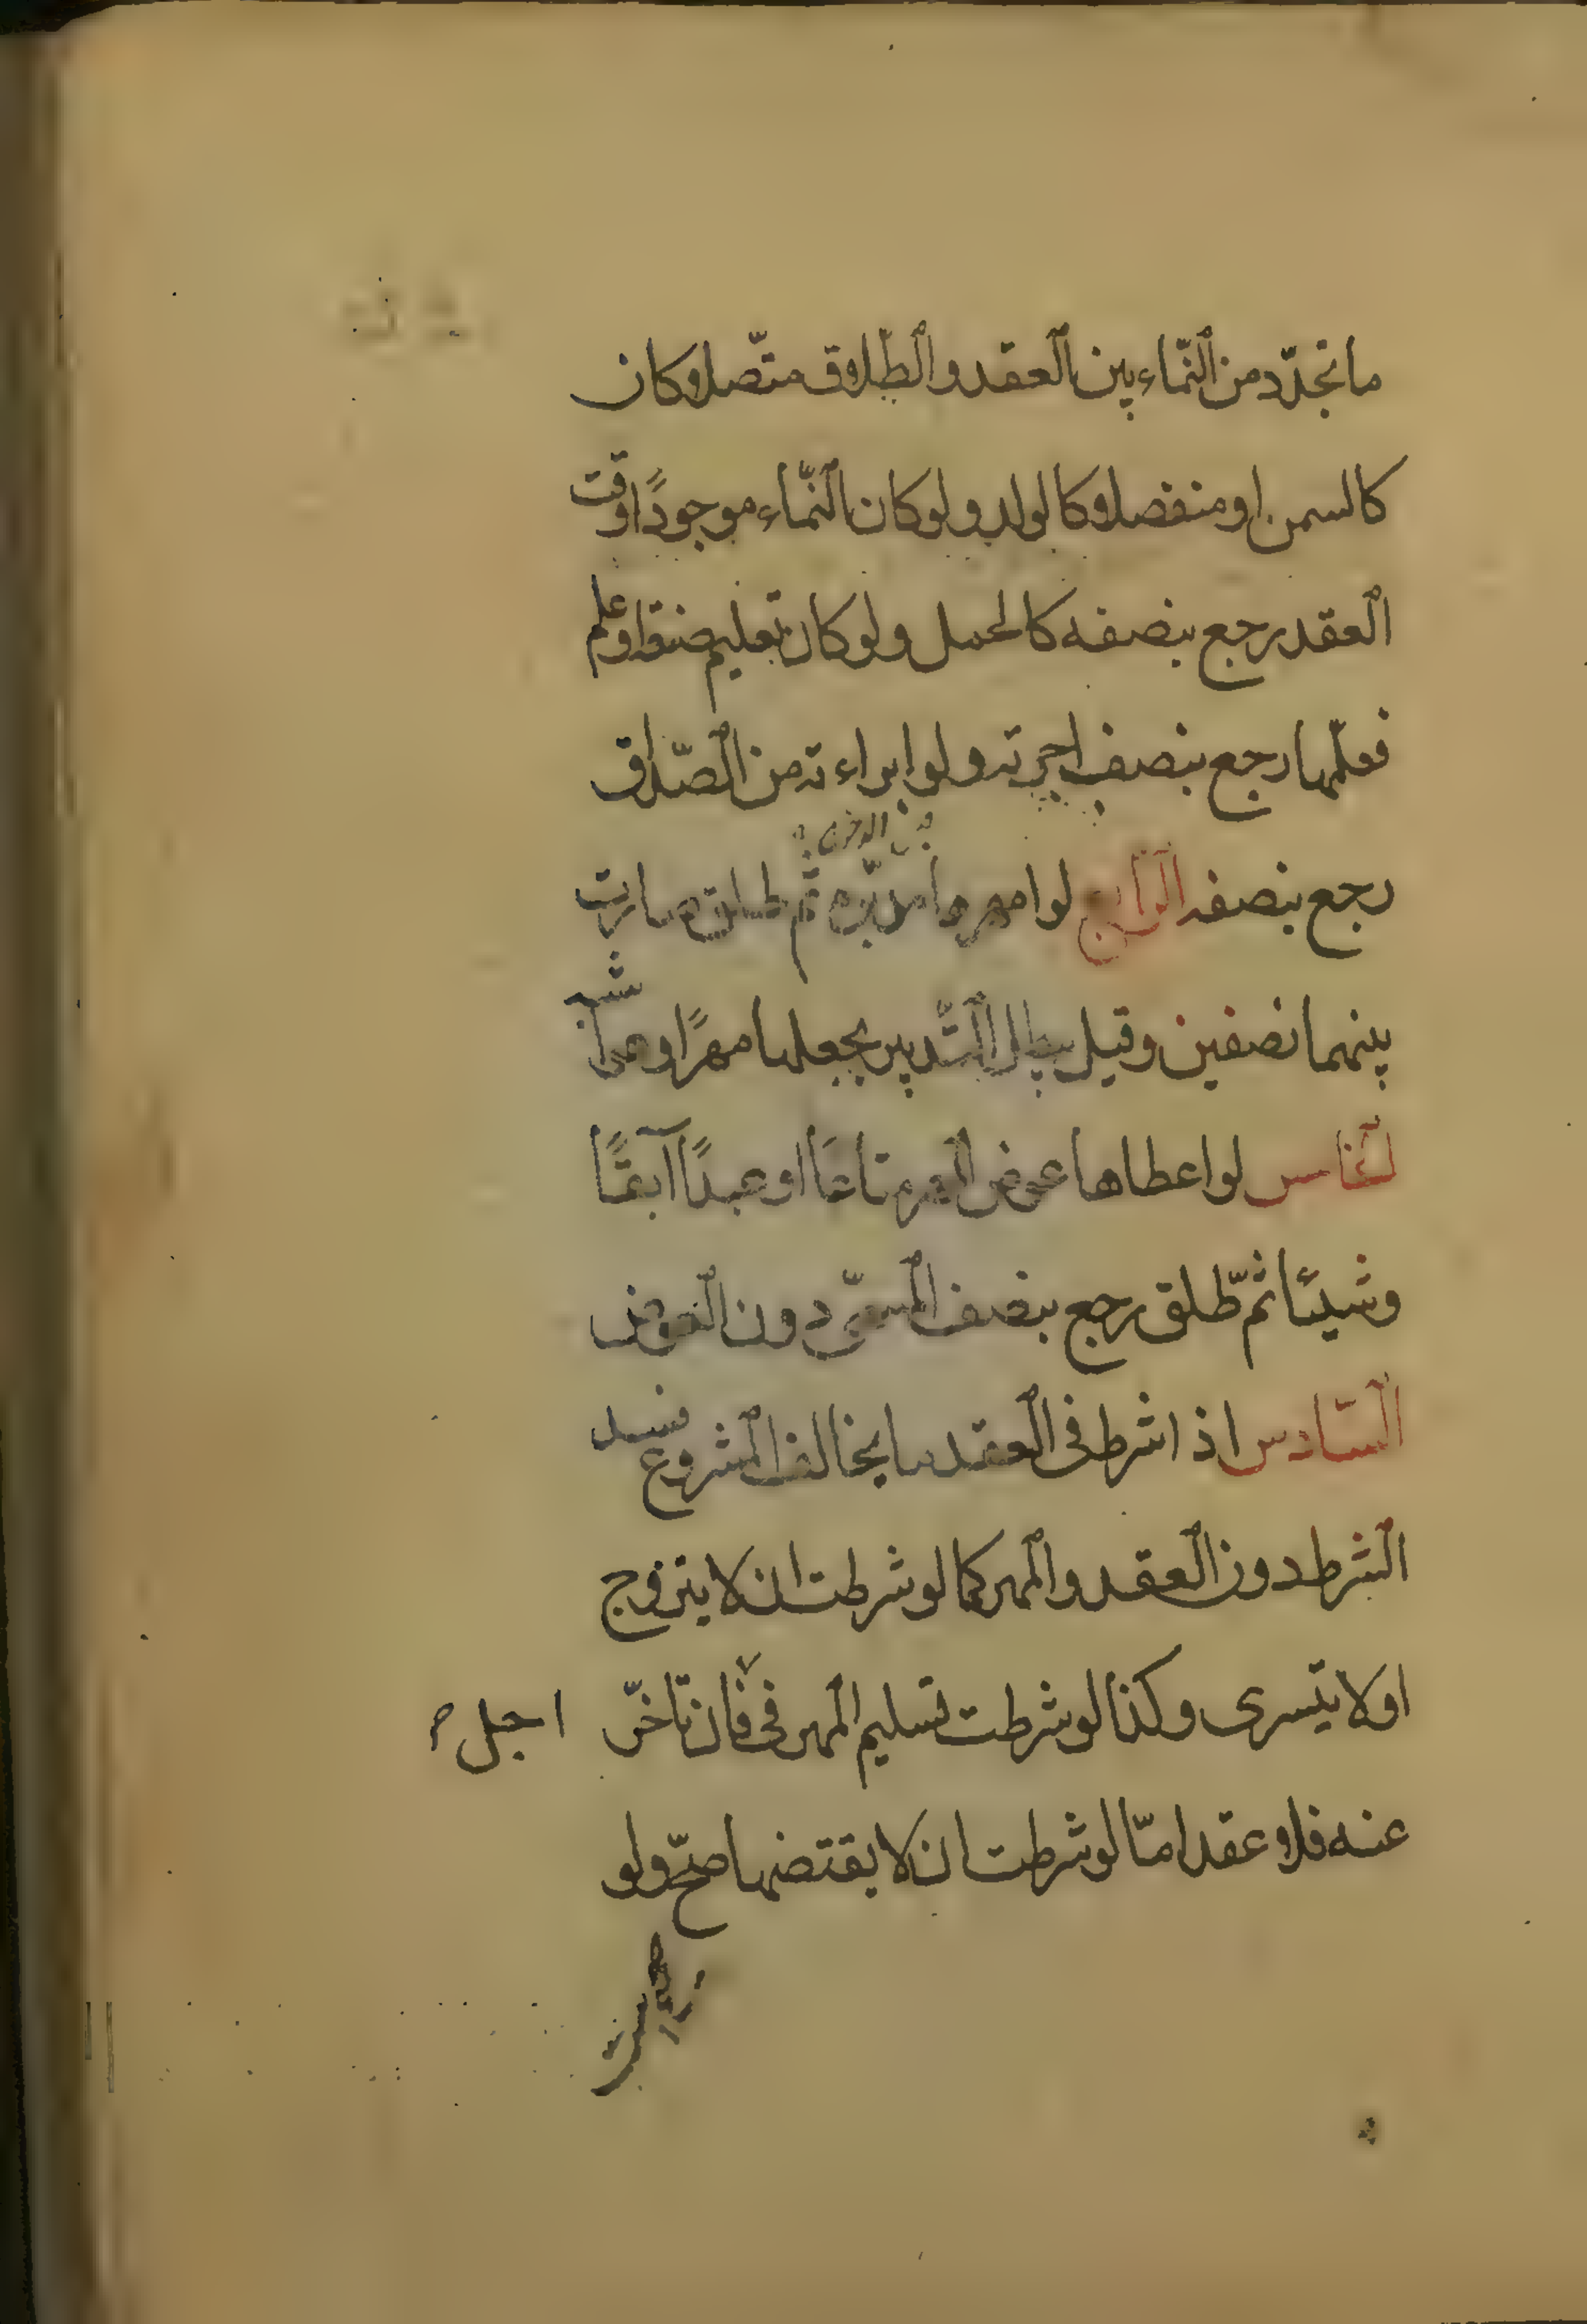 ما تجدّد من النّماء بين العقد والطّلاق متّصلا وكان
كالسمن او منفصلا وكالولد ولو كان النّماء موجودًا وقت
العقد رجع بنصفه كالحمل ولو كان تعليم صنعة او علم
فعلّمها رجع بنصف اجرته ولو ابراءته من الصّداق
رجع بنصفه الرّابع لو امهرها مدبّرة ثم طلق صارت
بينهما نصفين وقيل يبطل التّدبير بجعلها مهرًا وهو اشبه
الخامس لو اعطاها عوض المهر متاعًا او عبدًا آبقًا
وشيئًا ثمّ طلق رجع بنصف المسمّى دون العوض
السّادس اذا شرط فى العقد ما يخالف المشروع فسد
الشرط دون العقد والمهر كما لو شرطت ان لا يتزوج
اولا يتسرى وكذا لو شرطت تسليم المهر فى فان تأخّر
اجل
عنه فلا عقد امّا لو شرطت ان لا يقتضها صحّ ولو